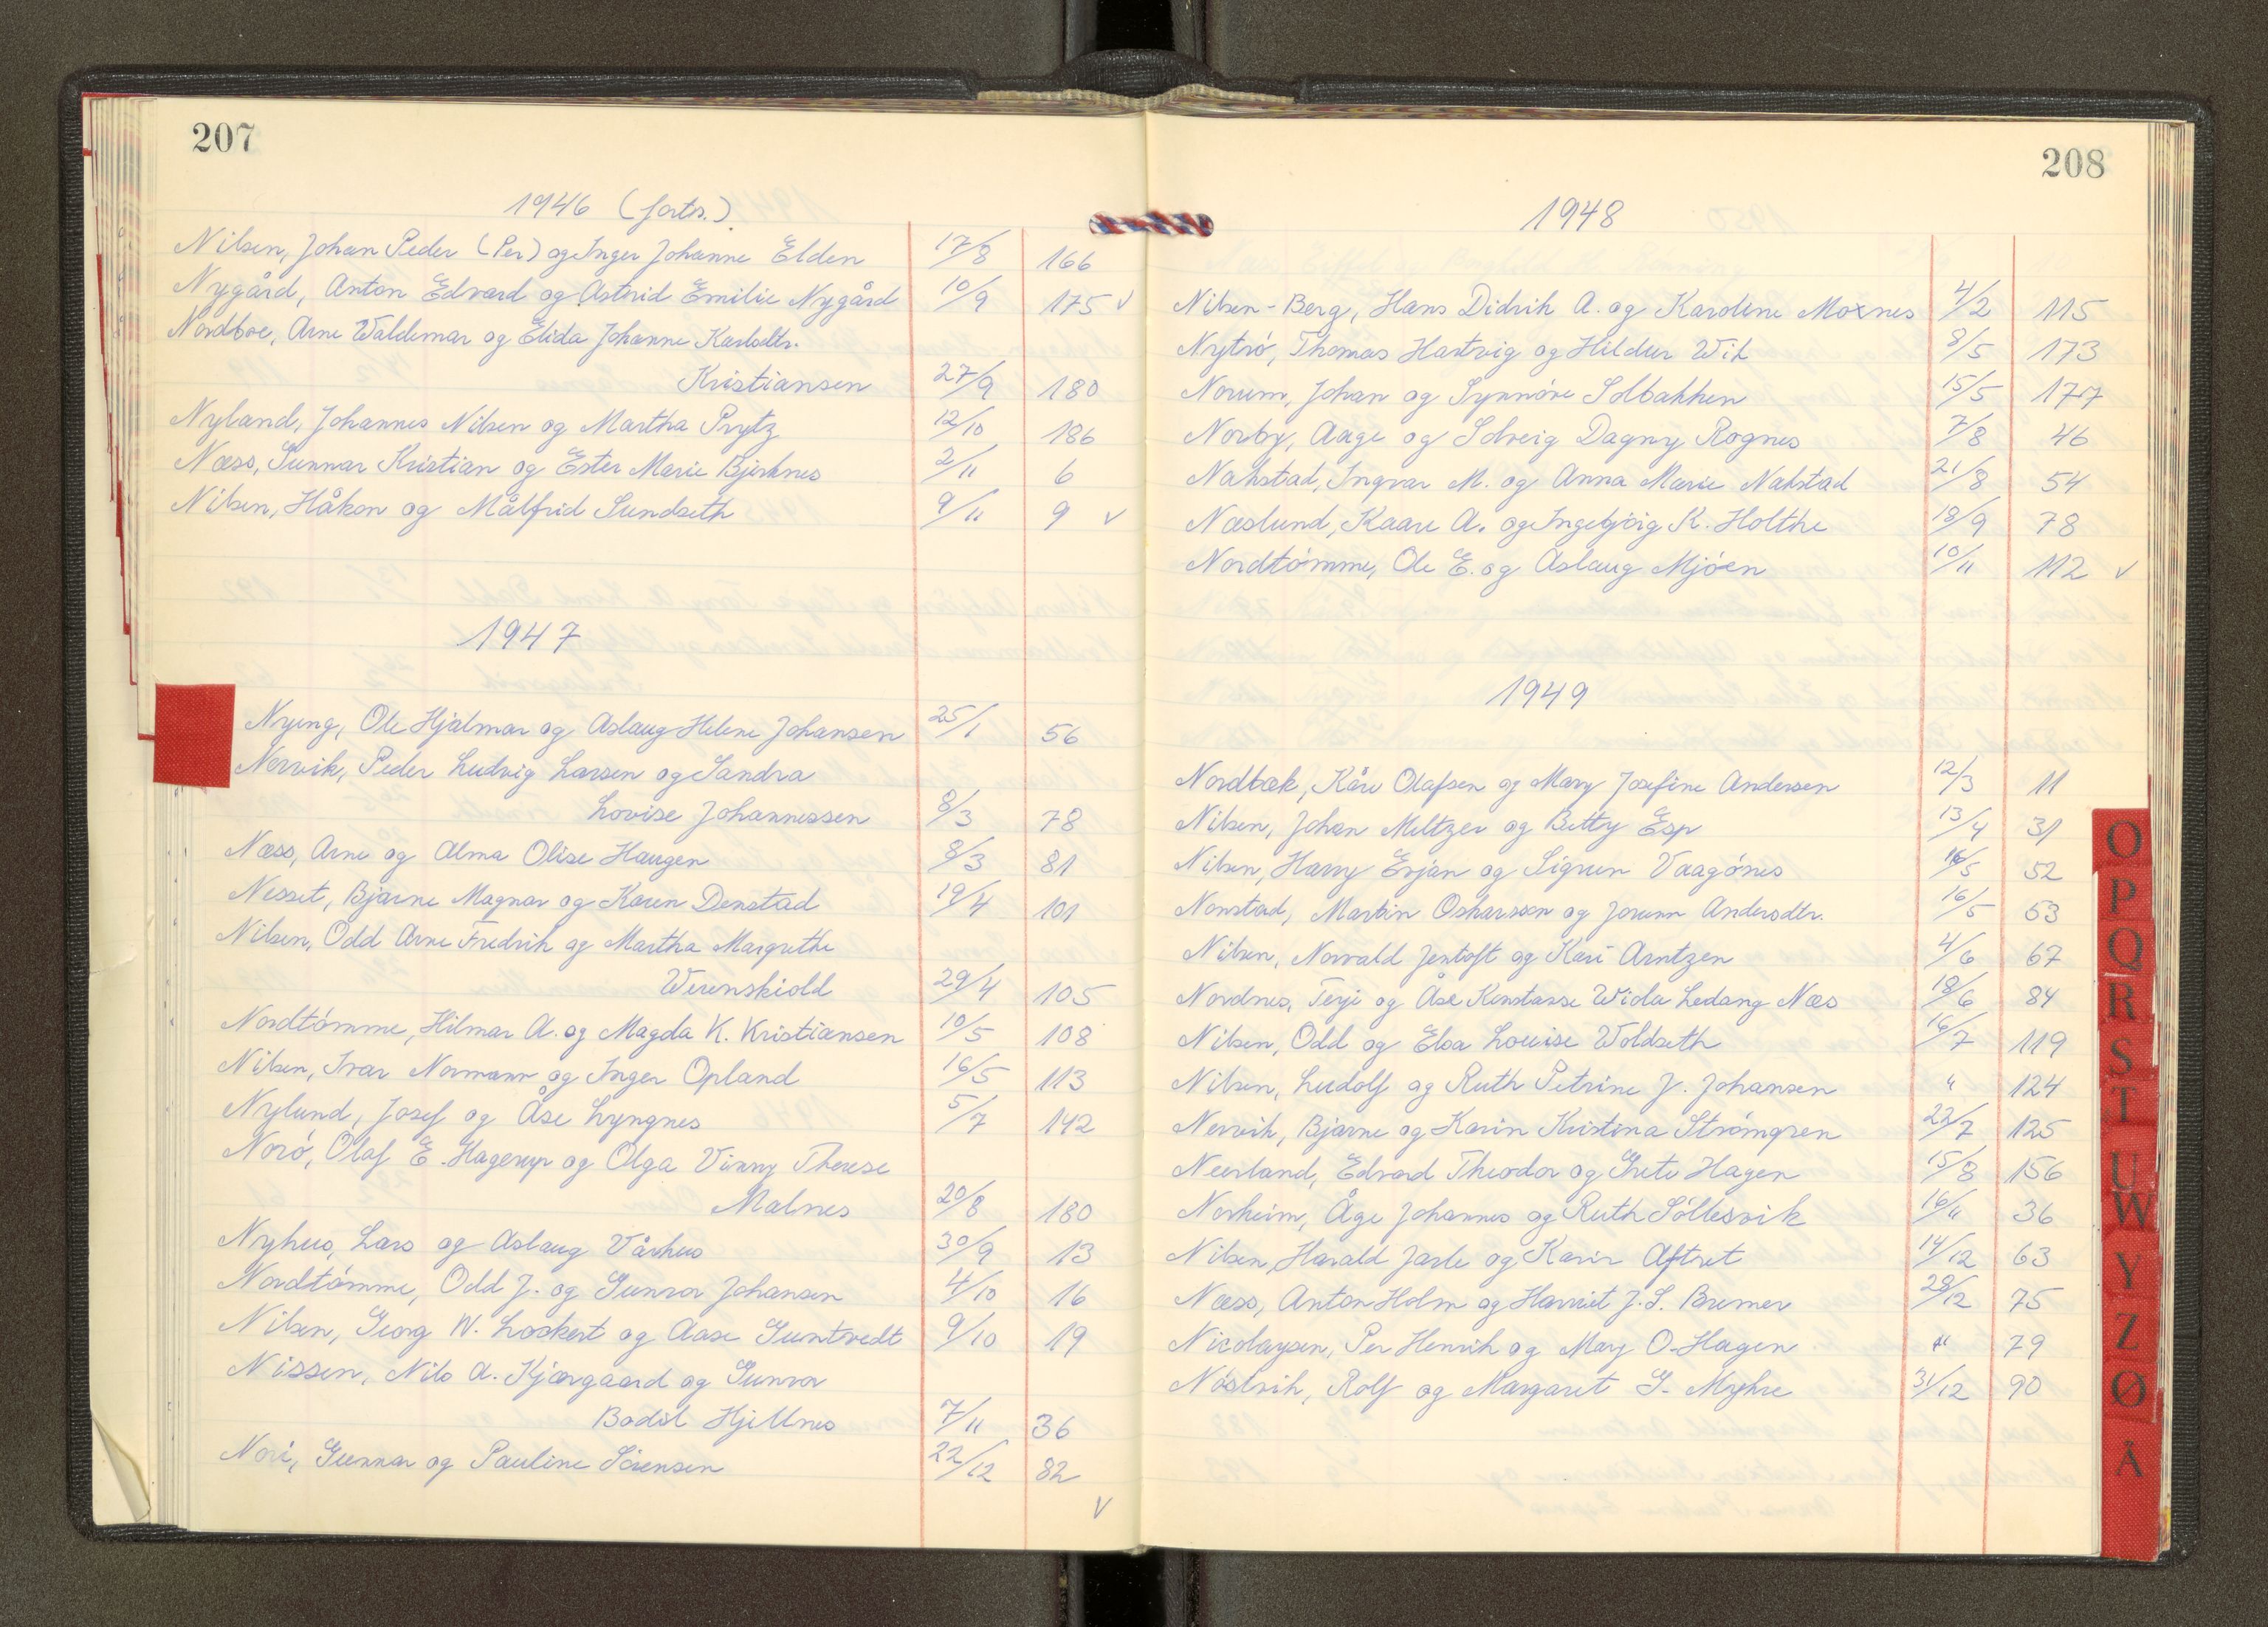 207
1946 (forts.)
Nilsen, Johan Peder (Per) og Inger Johanne Elden 17/8 166
Nygård, Anton Edvard og Astrid Emilie Nygård 10/9 175 v
Nordboe, Arne Waldemar og Elida Johanne Karlsdtr.
Kristiansen 27/9 180
Nyland, Johannes Nilsen og Martha Prytz 12/10 186
Næss, Gunnar Kristian og Ester Marie Bjerknes 2/11 6
Nilsen, Håkon og Målfrid Sundseth 9/11 9 v
1947
Nyeng, Ole Hjalmar og Aslaug Helene Johansen 25/1 56
Nervik, Peder Ludvig Larsen og Sandra
Lovise Johannessen 8/3 78
Næss, Arne og Alma Olise Haugen 8/3 81
Nesset, Bjarne Magnar og Karen Denstad 19/4 101
Nilsen, Odd Arne Fredrik og Martha Margrethe
Werenskiold 29/4 105
Nordtømme, Hilmar A. og Magda K. Kristiansen 10/5 108
Nilsen, Ivar Normann og Inger Opland 16/5 113
Nylund, Josef og Åse Lyngnes 5/7 142
Norø, Olaf E. Hagerup og Olga Vinny Therese
Malnes 20/8 180
Nyhus, Lars og Aslaug Vårhus 30/9 13
Nordtømme, Odd J. og Gunvor Johansen 4/10 16
Nilsen, Georg W. Loskert og Aase Guntvedt 9/10 19
Nissen, Nils A. Kjærgaard og Gunvor
Bodil Hjellnes 7/11 36
Nori, Gunnar og Pauline Sørensen 22/12 82
v
208
1948
Nilsen-Berg, Hans Didrik A. og Karoline Moxnes 4/2 115
Nytrø, Thomas Hartvig og Hildur Wik 8/5 173
Norum, Johan og Synnøve Solbakken 15/5 177
Norby, Aage og Solveig Dagny Rognes 7/8 46
Nakstad, Ingvar M. og Anna Marie Nakstad 21/8 54
Næslund, Kaare A. og Ingebjørg K. Holthe 18/9 78
Nordtømme, Ole E. og Aslaug Mjøen 10/11 112 v
1949
Nordbæk, Kåre Olafsen og Mary Josefine Andersen 12/3 11
Nilsen, Johan Meltzer og Betty Esp 13/4 31
Nilsen, Harry Ørjan og Sigrun Vaagønes 16/5 52
Nonstad, Martin Oskarsson og Jorunn Andersdtr. 16/5 53
Nilsen, Norvald Jentoft og Kari Arntzen 4/6 67
Nordnes, Terje og Åse Konstanse Wida Ledang Næs 18/6 84
Nilsen, Odd og Elsa Louise Woldseth 16/7 119
Nilsen, Ludolf og Ruth Petrine J. Johansen " 124
Nervik, Bjarne og Karin Kristina Strømgren 22/7 125
Neerland, Edvard Theodor og Grete Hagen 15/8 156
Norheim, Åge Johannes og Ruth Søllesvik 16/11 36
Nilsen, Harald Jarle og Karin Aftret 14/12 63
Næss, Anton Holm og Harriet J. S. Bremer 28/12 75
Nicolaysen, Per Henrik og Mary O. Hagen " 79
Nøstvik, Rolf og Margaret G. Myhre 31/12 90
O
P
Q
R
S
T
U
W
Y
Z
Ø
Å